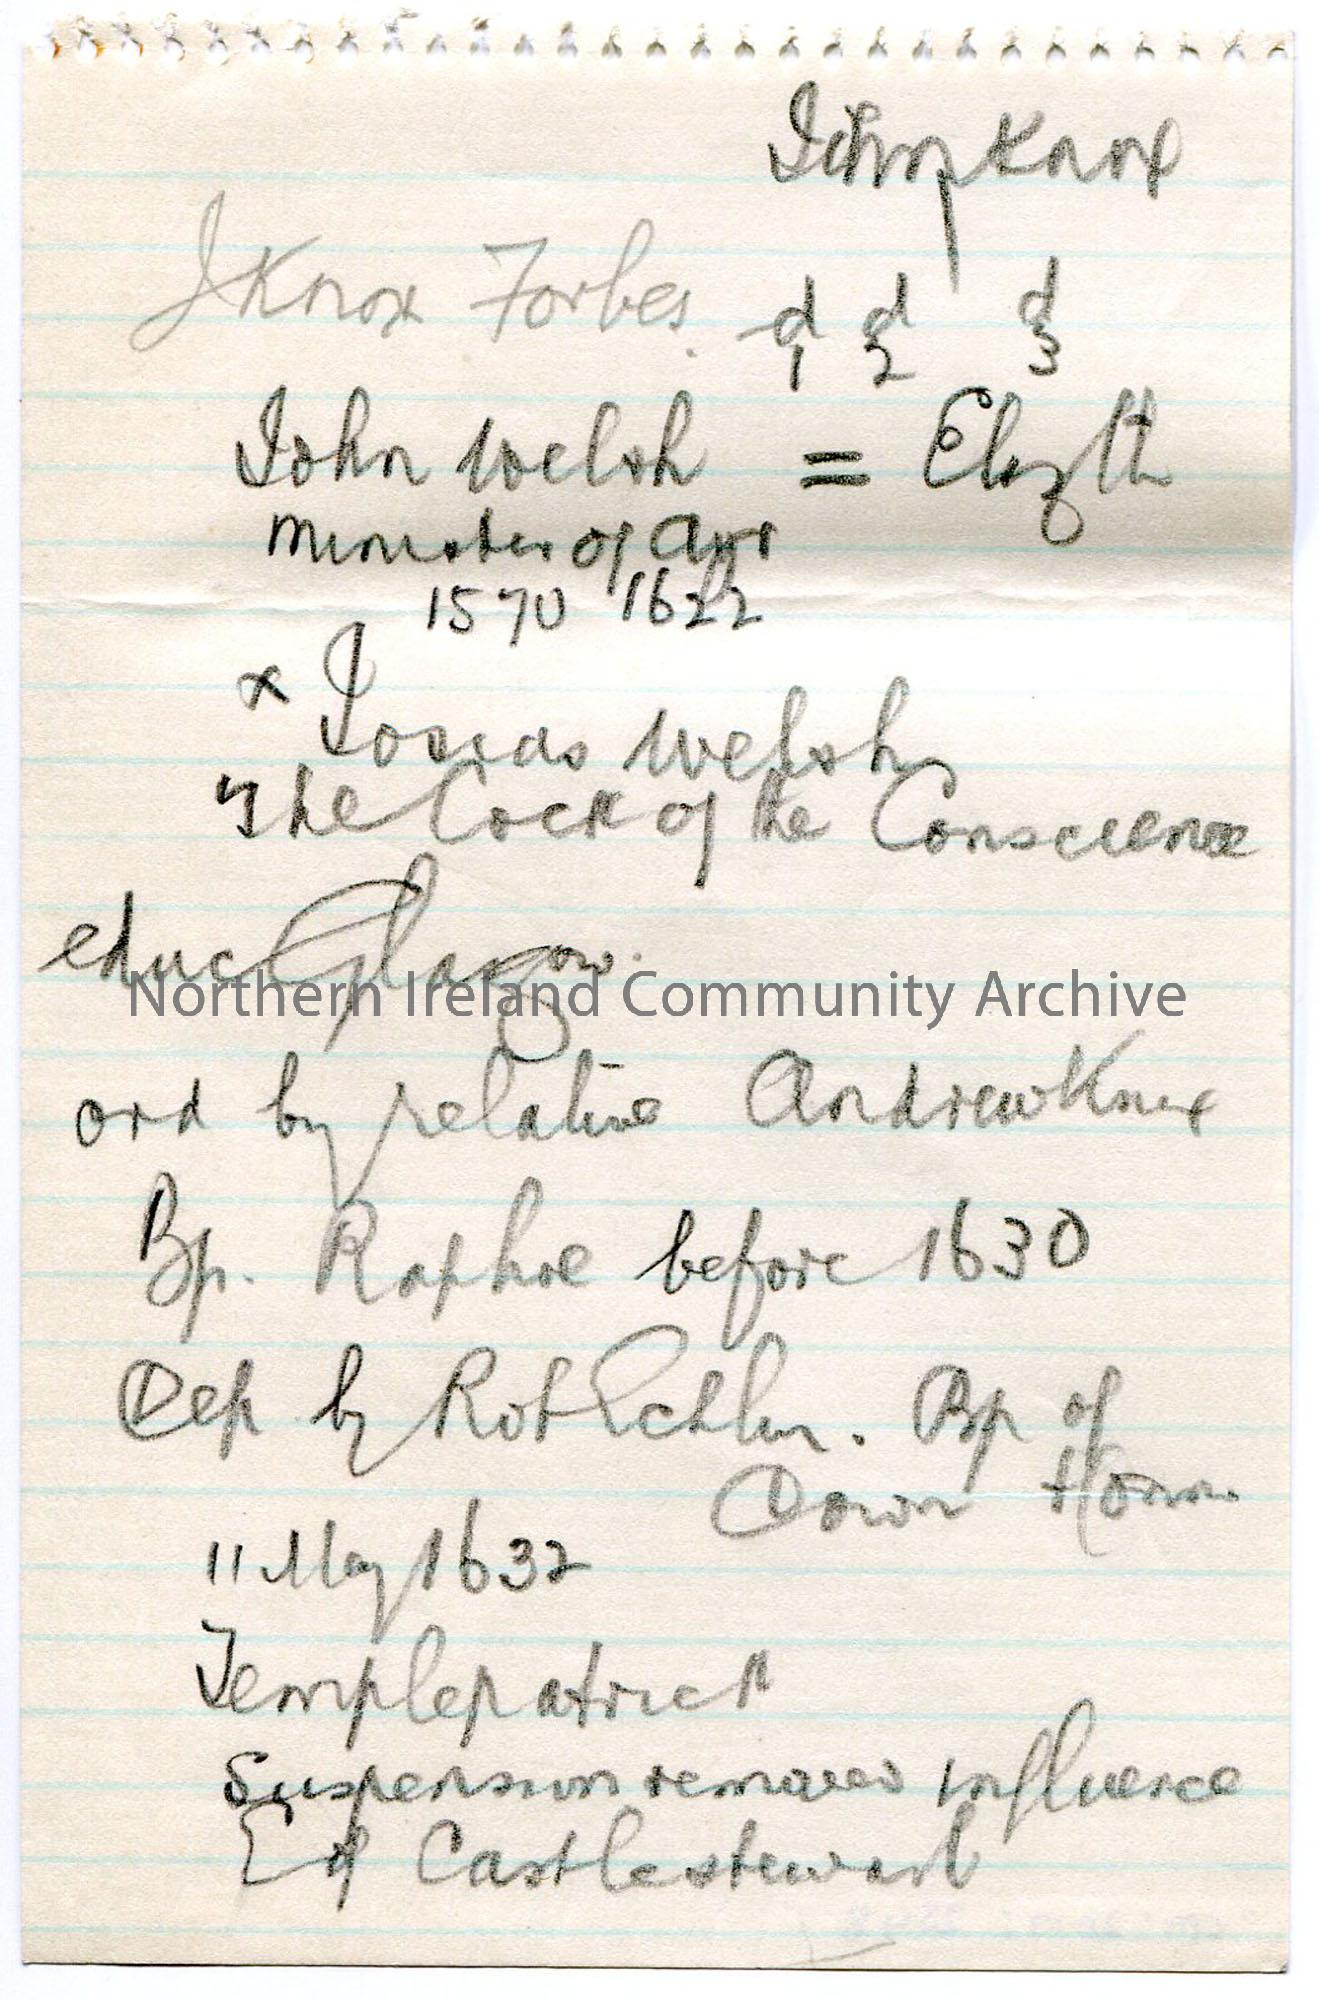 John Knox
J Knox Forbes. d d d
1 2 3
John Welsh = Elizth
Minister of Ayr
1570 1622
x Josias Welsh
"The Cock of the Conscience
educ Glasgow.
Northern Ireland Community Archive
ord by relative Andrew Knox
Bp. Raphoe before 1630
Dep by Robt Echlin. Bp of
Down + Conn
11 May 1632
Templepatrick
Suspension removed influence
E of Castlestewart